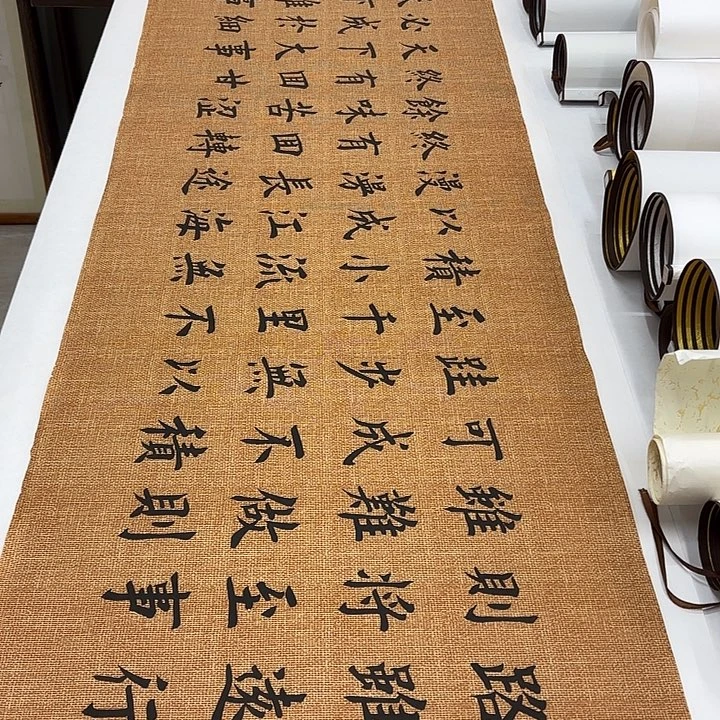 路雖遠行
則將至事
雖難做則
可成不積
跬步無以
至千里不
積小流無
以成江海
漫漫長途
終有回轉
餘味苦澀
終有回甘
天下大事
必成於細